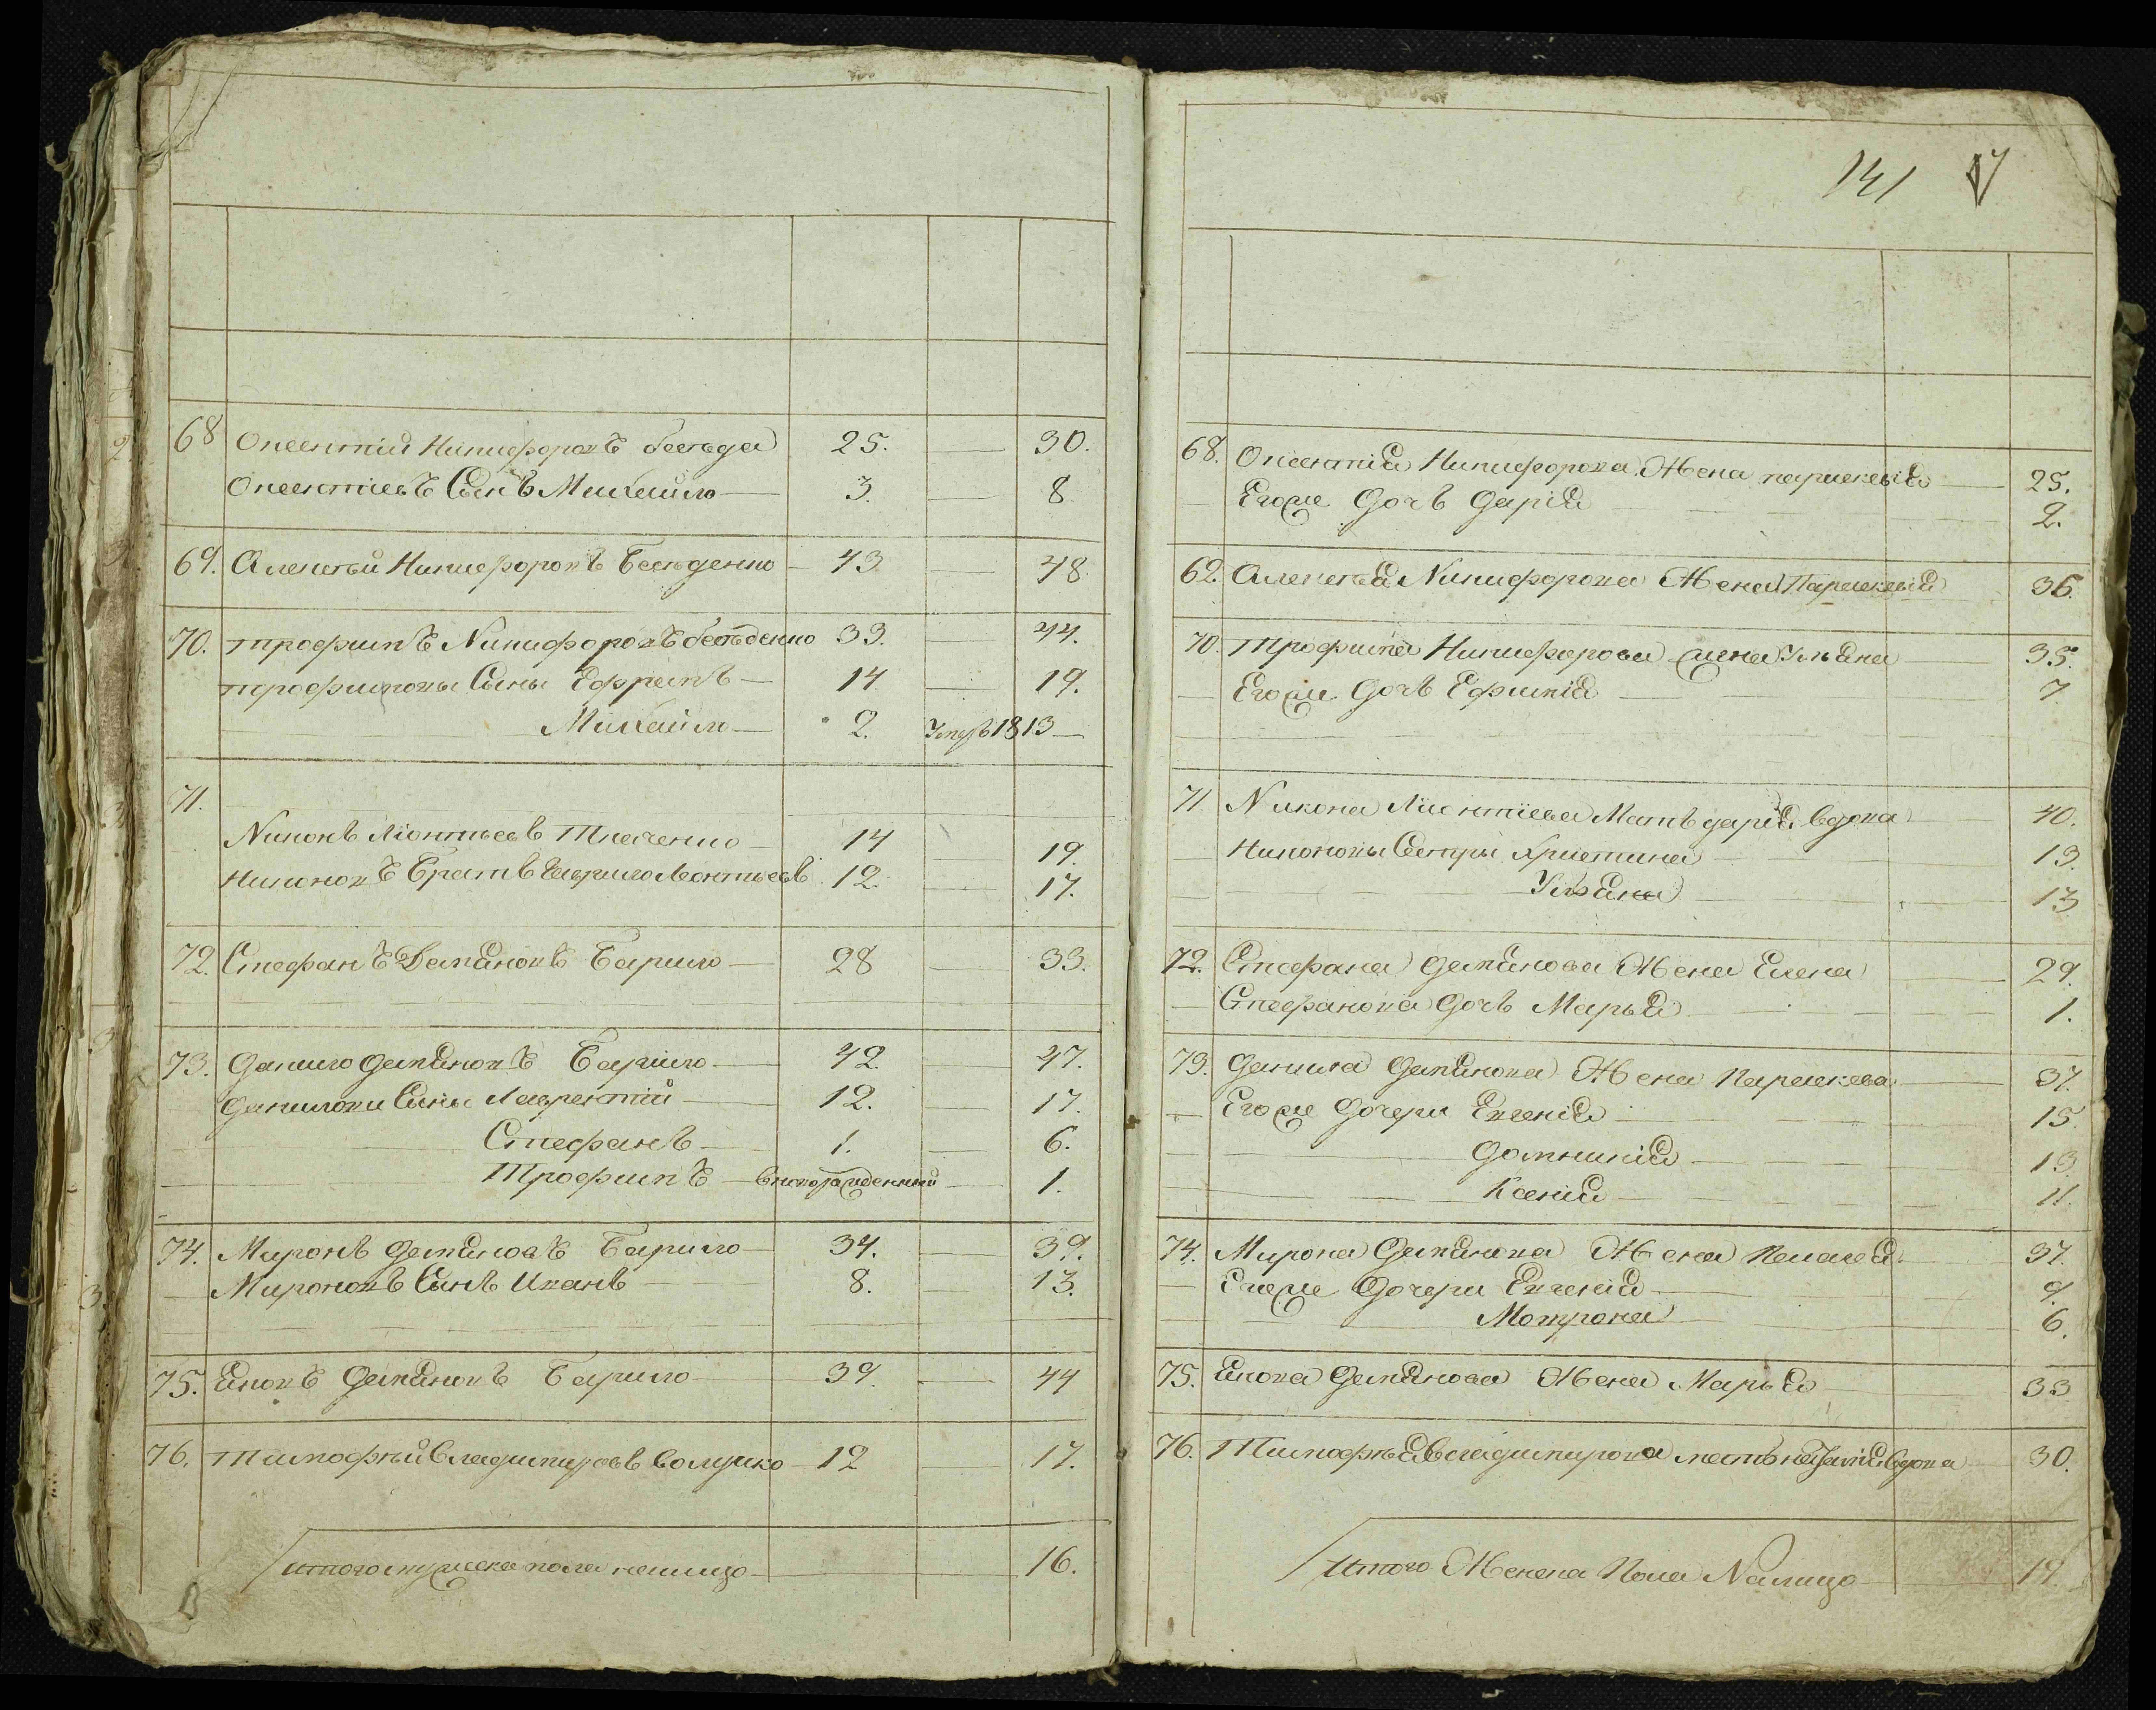 141
68 Онсентій Никифоровъ беседа 25. 30.
Онсентіевъ Сынъ Михайло 3. 8
69. Алексѣй Никифоровъ Беседенко 43 48
70. Трофимъ Никифоровъ беседенко 39. 44.
Трофимовы Сыны Ефремъ 14 19.
Михайло 2. Умеръ 1813
71.
Никонъ Ліонтьевъ Ткаченко 14 19.
Никоновъ Братъ Гаврило Леонтьевъ 12. 17.
72. Стефанъ Демяновъ Барило 28 33.
73. Данило Демяновъ Барило 42. 47.
Даниловы Сыны Лаврентій 12. 17.
Стефанъ 1. 6.
Трофимъ вноворожденный 1.
74. Миронъ Демяновъ Барило 34. 39.
Мироновъ Сынъ Иванъ 8. 13.
75. Яковъ Демяновъ Барило 39. 44
76. Тимофѣй Владимировъ 12 17.
Итого мужеска пола налицо 16.
68. Онсентія Никифорова Жена параскевія 25.
Егоже дочь дарія 2.
62. Алексѣя Никифорова Жена Параскевія 36.
70. Трофима Никифорова жена Ульяна 35.
Егоже дочь Ефимія 7.
71. Никона Ліонтіева Мать дарія вдова 40.
Никоновы Сестры Христина 19.
Ульяна 13
72. Стефана демянова Жена Елена 29.
Стефанова дочь Марья 1.
73. Данила Демянова Жена Параскева 37.
Егоже Дочери Евгенія 15.
Домникія 13
Ксенія 11.
74. Мирона Демянова Жена Пелагея 37.
Егоже Дочери Евгенія 9.
Мотрона 6.
75. Якова Демянова Жена Марья 33
76. Тимофѣя Владимирова мать вдова 30.
Итого Женска Пола Налицо 19.